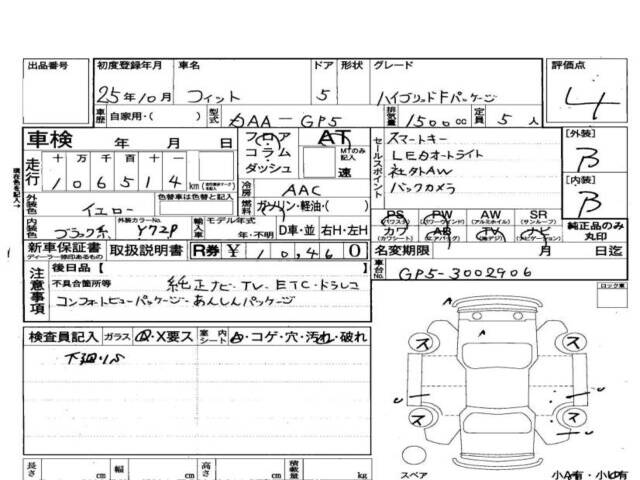 出品番号 初度登録年月 車名 ドア 形状 グレード 評価点
25年10月 フィット 5 ハイブリッドFパッケージ 4
車歴 自家用・( ) 型式 DAA-GP5 排気量 1500cc 定員 5人
車検 年 月 日 フロア AT スマートキー [外装]
走行 十 万 千 百 十 一 コラム MTのみ記入 セールスポイント LEDオートライト B
106514 km ダッシュ 速 社外AW [内装]
冷房 AAC バックカメラ B
外装色 イエロー 色替車は色替と記入 燃料 ガソリン・軽油・( )
内装色 ブラック系 外装カラーNo. Y72P 輸入車 モデル年式 年・不明 D車・並 右H・左H
PS PW AW SR 純正品のみ丸印
カワ AB TV ナビ
新車保証書 取扱説明書 R券 ¥10,460 名変期限 月 日迄
ディーラー捺印あるもの
注意事項 後日品[ ] 車台No. GP5-3002906
不具合箇所等 純正ナビ・TV・ETC・ドラレコ
コンフォートビューパッケージ・あんしんパッケージ
ロック車
検査員記入 ガラス・X要ス 室内シート・コゲ・穴・汚れ・破れ
下廻りS
A
ス ス
ス ス
スペア
長さ cm 幅 cm 高さ cm 積載量 kg
小A有・小U有